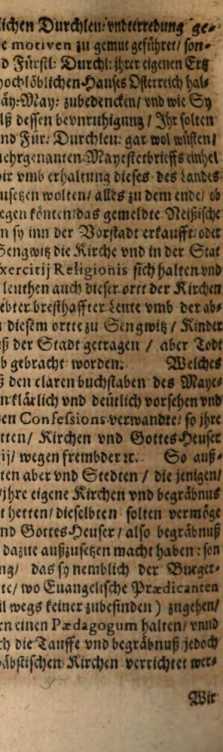 lichen Durchleu: vnterredung ge-
e motiven zu gemut geführet/ son-
d Fürstl: Durchl: ihrer eigenen Ertz
ochlöblichen-Hauses Osterreich hal-
äy-May: zubedencken/ vnd wie Sy
lß dessen bevnruhigung/ Ihr solten
nd Für: Durchleu: gar wol wüsten/
ehrgenanten Mayestetbrieffs einhel
ir vmb erhaltung dieses des Landes
usetzen wolten/ alles zu dem ende/ ob
egen könten/ das gemeldte Neißische
n sy inn der Vorstadt erkaufft/ oder
Sengwitz die Kirche vnd in der Stat
xercitij Religionis sich halten vnd
leuthen auch dieser ortt der Kirchen
ebter bresthaffter Leute vmb der ab-
diesem ortte zu Sengwitz/ Kinder
ß der Stadt getragen/ aber Todt
b gebracht worden. Welches
ß den claren buchstaben des Maye-
rklärlich vnd deutlich vorsehen vnd
en Confessions-verwandte/ so ihre
tten/ Kirchen vnd Gottes-Heuser
ij/ wegen frembder ꝛc. So auß-
ten aber vnd Stedten/ die jenigen/
/ihre eigene Kirchen vnd begräbnus
t hetten/ dieselbten solten vermöge
nd Gottes-Heuser/ also begräbnuß
dazue außzusetzen macht haben: son
ng/ das sy nemblich der Bueger-
te/ wo Euangelische Prædicanten
il wegs keiner zubefinden) zugehen/
rn einen Pædagogum halten/ vnnd
ch die Tauffe vnd begräbnuß jedoch
äbstischen Kirchen verrichtet wer-
Wir